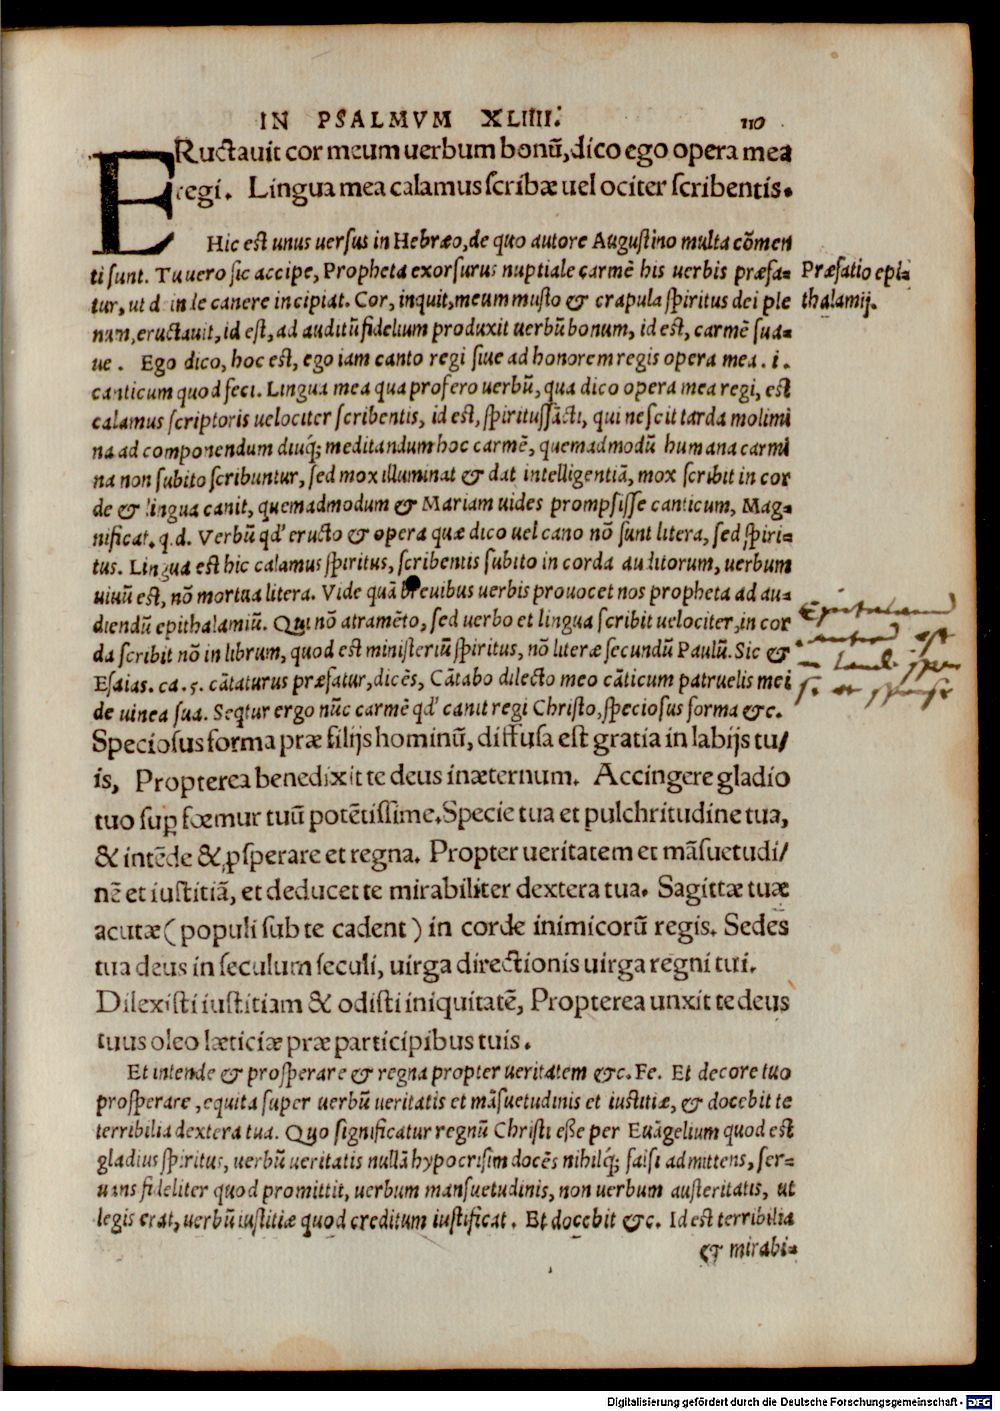 IN PSALMVM XLIIII. 110
ERuctauit cor meum uerbum bonũ, dico ego opera mea
regi. Lingua mea calamus scribæ uel ociter scribentis.
Hic est unus uersus in Hebræo, de quo autore Augustino multa cõmen
ti sunt. Tu uero sic accipe, Propheta exorsurus nuptiale carmẽ his uerbis præfa-
Præfatio epi-
tur, ut deinde canere incipiat. Cor, inquit, meum musto & crapula spiritus dei ple
thalamij.
num, eructauit, id est, ad auditũ fidelium produxit uerbũ bonum, id est, carmẽ sua-
ue. Ego dico, hoc est, ego iam canto regi siue ad honorem regis opera mea. i.
canticum quod feci. Lingua mea qua profero uerbũ, qua dico opera mea regi, est
calamus scriptoris uelociter scribentis, id est, spiritus sãcti, qui nescit tarda molimi
na ad componendum diuq; meditandum hoc carmẽ, quemadmodũ humana carmi
na non subito scribuntur, sed mox illuminat & dat intelligentiã, mox scribit in cor
de & lingua canit, quemadmodum & Mariam uides prompsisse canticum, Mag-
nificat. q.d. Verbũ qd' eructo & opera quæ dico uel cano nõ sunt litera, sed spiri-
tus. Lingua est hic calamus spiritus, scribentis subito in corda auditorum, uerbum
uiuũ est, nõ mortua litera. Vide quã breuibus uerbis prouocet nos propheta ad au-
diendũ epithalamiũ. Qui nõ atramẽto, sed uerbo et lingua scribit uelociter, in cor
da scribit nõ in librum, quod est ministeriũ spiritus, nõ literæ secundũ Paulũ. Sic &
Esaias. ca. 5. cãtaturus præfatur, dicẽs, Cãtabo dilecto meo cãticum patruelis mei
de uinea sua. Seqtur ergo nũc carmẽ qd' canit regi Christo, speciosus forma &c.
Speciosus forma præ filijs hominũ, diffusa est gratia in labijs tu/
is, Propterea benedixit te deus in æternum. Accingere gladio
tuo sup fœmur tuũ potẽtissime. Specie tua et pulchritudine tua,
& intẽde & ꝓsperare et regna. Propter ueritatem et mãsuetudi/
nẽ et iustitiã, et deducet te mirabiliter dextera tua. Sagittæ tuæ
acutæ (populi sub te cadent) in corde inimicorũ regis. Sedes
tua deus in seculum seculi, uirga directionis uirga regni tui.
Dilexisti iustitiam & odisti iniquitatẽ, Propterea unxit te deus
tuus oleo læticiæ præ participibus tuis.
Et intende & prosperare & regna propter ueritatem &c. Fe. Et decore tuo
prosperare, equita super uerbũ ueritatis et mãsuetudinis et iustitiæ, & docebit te
terribilia dextera tua. Quo significatur regnũ Christi esse per Euãgelium quod est
gladius spiritus, uerbũ ueritatis nullã hypocrisim docẽs nihilq; falsi admittens, ser-
uans fideliter quod promittit, uerbum mansuetudinis, non uerbum austeritatis, ut
legis erat, uerbũ iustitiæ quod creditum iustificat. Et docebit &c. Id est terribilia
& mirabi-
Digitalisierung gefördert durch die Deutsche Forschungsgemeinschaft - DFG